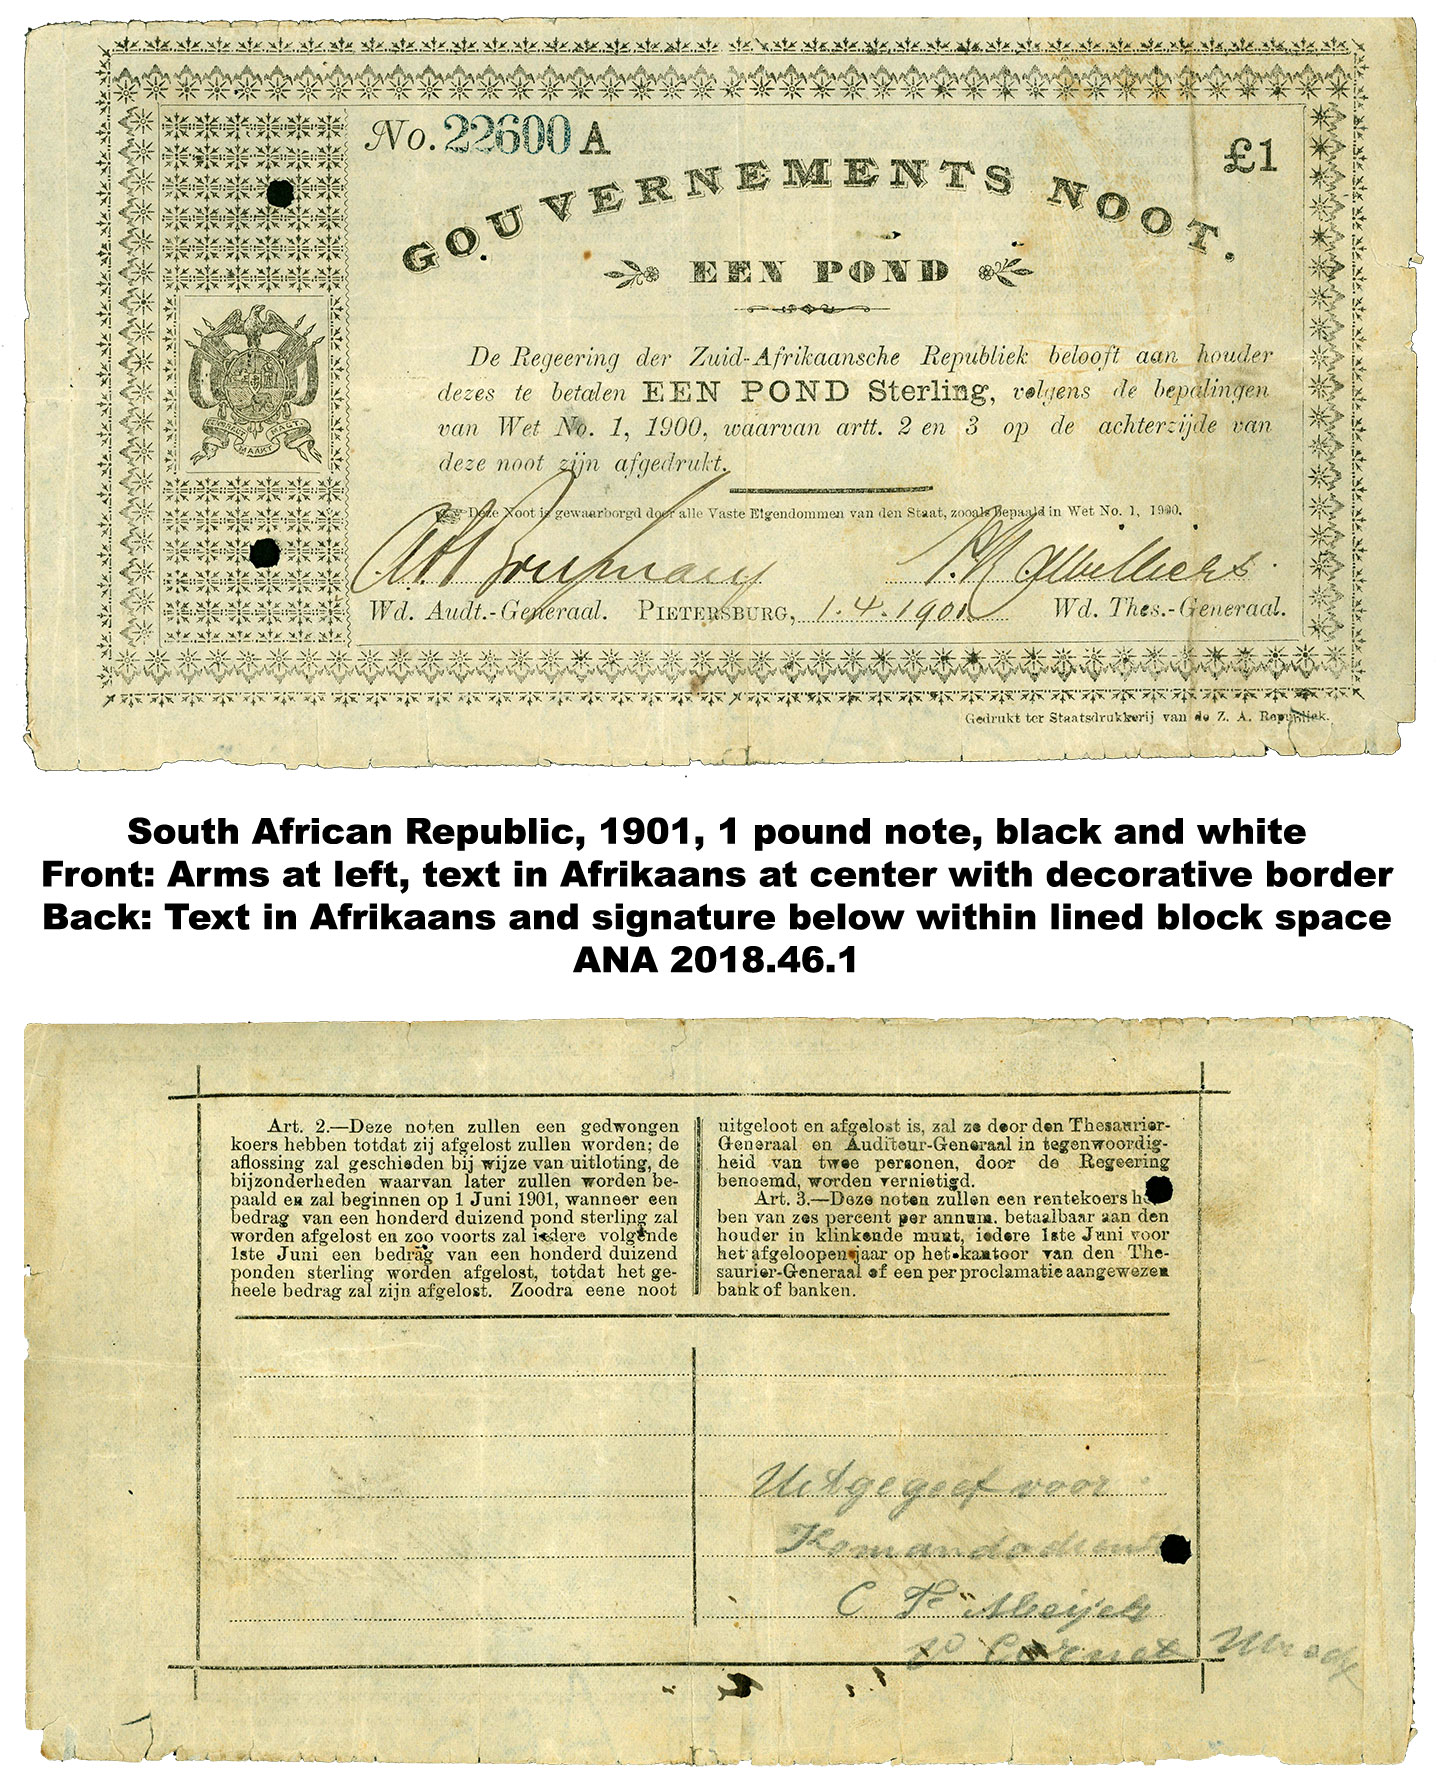 No. 22600 A
£1
GOUVERNEMENTS NOOT.
EEN POND
De Regeering der Zuid-Afrikaansche Republiek belooft aan houder
dezes te betalen EEN POND Sterling, volgens de bepalingen
van Wet No. 1, 1900, waarvan artt. 2 en 3 op de achterzijde van
deze noot zijn afgedrukt.
Deze Noot is gewaarborgd door alle Vaste Eigendommen van den Staat, zooals Bepaald in Wet No. 1, 1900.
Wd. Audt.-Generaal. PIETERSBURG, 1.4.1901 Wd. Thes.-Generaal.
MAAKT MAGT
Gedrukt ter Staatsdrukkerij van de Z. A. Republiek.
South African Republic, 1901, 1 pound note, black and white
Front: Arms at left, text in Afrikaans at center with decorative border
Back: Text in Afrikaans and signature below within lined block space
ANA 2018.46.1
Art. 2.—Deze noten zullen een gedwongen
koers hebben totdat zij afgelost zullen worden; de
aflossing zal geschieden bij wijze van uitloting, de
bijzonderheden waarvan later zullen worden be-
paald en zal beginnen op 1 Juni 1901, wanneer een
bedrag van een honderd duizend pond sterling zal
worden afgelost en zoo voorts zal iedere volgende
1ste Juni een bedrag van een honderd duizend
ponden sterling worden afgelost, totdat het ge-
heele bedrag zal zijn afgelost. Zoodra eene noot
uitgeloot en afgelost is, zal ze door den Thesaurier-
Generaal en Auditeur-Generaal in tegenwoordig-
heid van twee personen, door de Regeering
benoemd, worden vernietigd.
Art. 3.—Deze noten zullen een rentekoers heb-
ben van zes percent per annum. betaalbaar aan den
houder in klinkende munt, iedere 1ste Juni voor
het afgeloopen jaar op het kantoor van den The-
saurier-Generaal of een per proclamatie aangewezen
bank of banken.
Uitgegeef voor
Komandodienst
C F Meijer
V Cornet